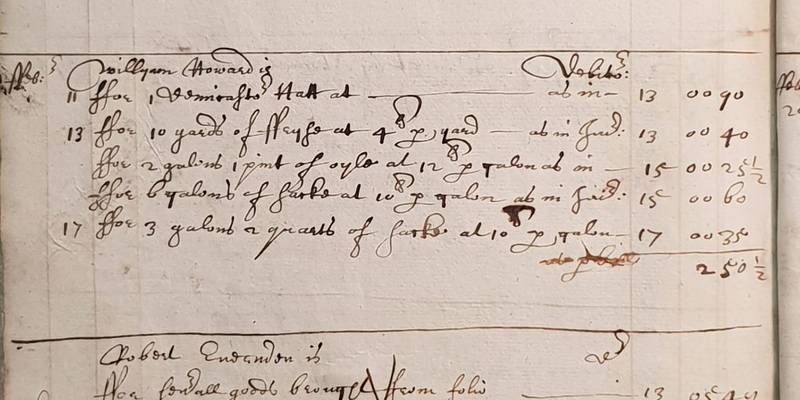 ffeb: William Howard is Debitor:
11 ffor 1 demicastor Hatt at as in 13 00 90
13 ffor 10 yards of ffryse at 4 p yard as in Jurd: 13 00 40
ffor 2 galons 1 pint of oyle at 12 p galon as in 15 00 25½
ffor 6 galons of sacke at 10 p galon as in Jurd: 15 00 60
17 ffor 3 galons 2 quarts of sacke at 10 p galon 17 00 35
250½
Robert Evernden is
ffor severall goods brought from folio 13